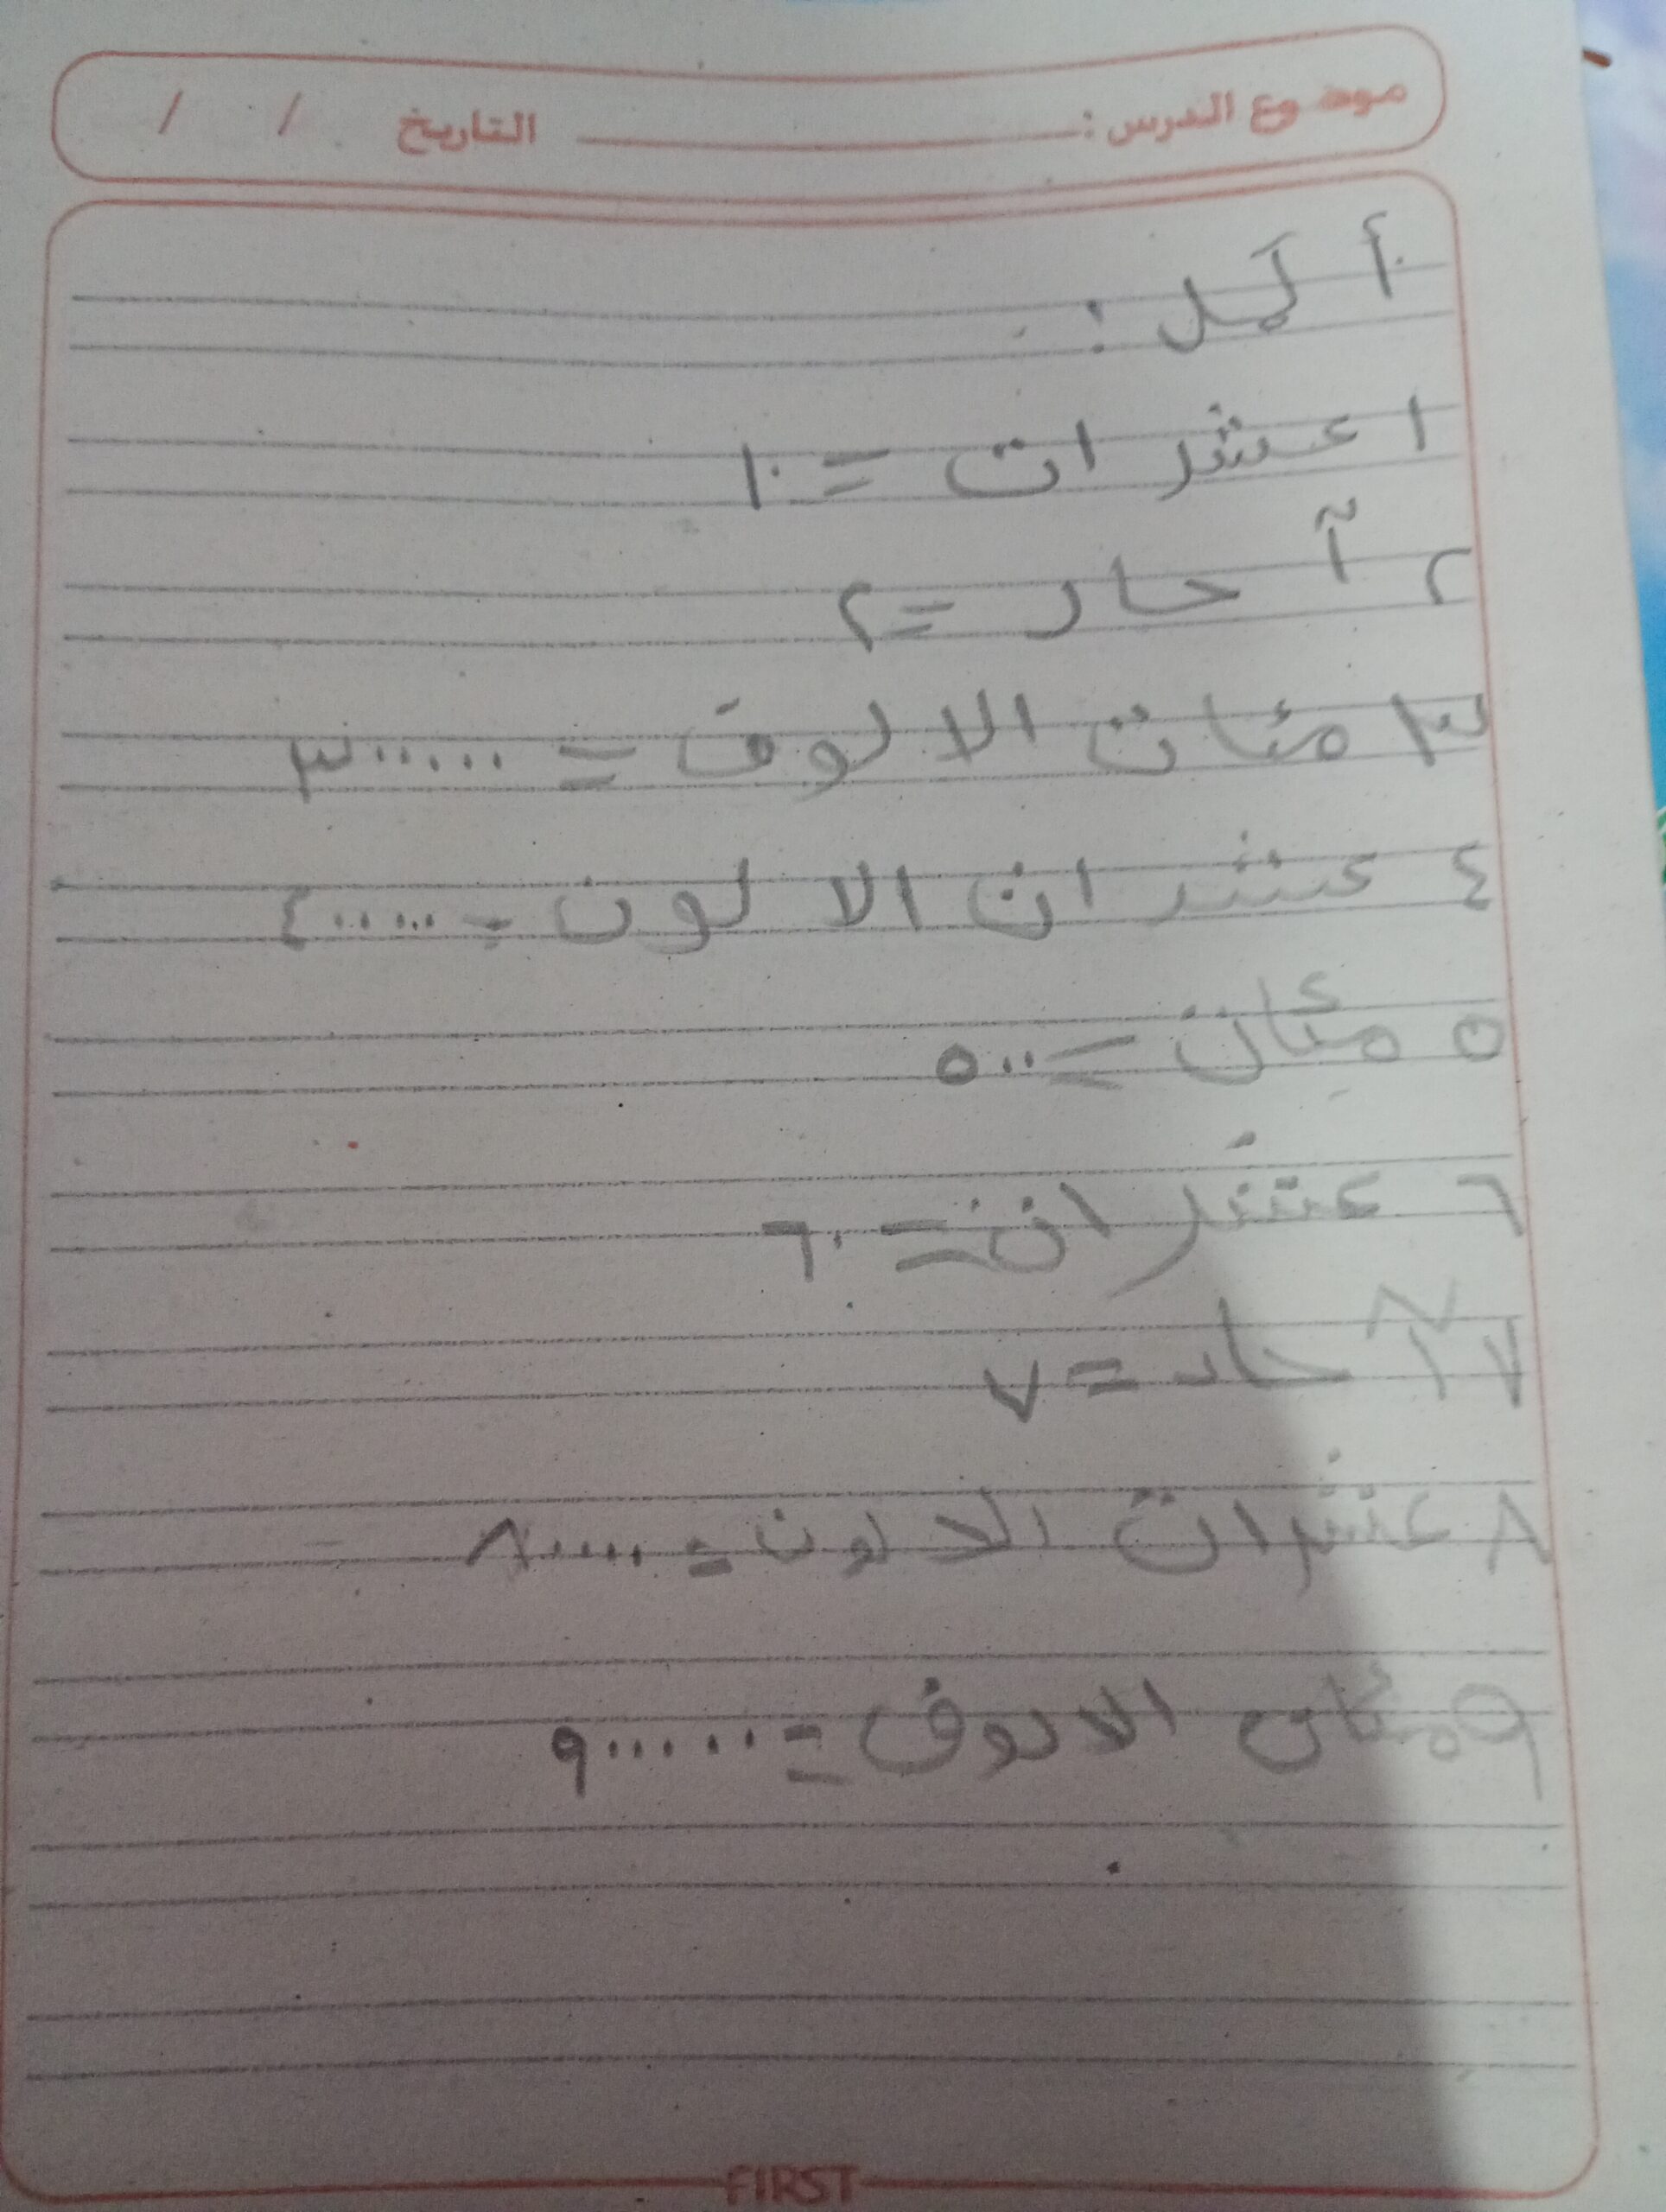 موضوع الدرس : التاريخ / /
أكمل :
١ عشرات = ١٠
٢ آحاد = ٢
٣ مئات الالوف = ٣٠٠٠٠٠
٤ عشرات الالوف = ٤٠٠٠٠٠
٥ مئات = ٥٠٠
٦ عشرات = ٦٠
٧ آحاد = ٧
٨ عشرات الالوف = ٨٠٠٠٠٠
٩ مئات الالوف = ٩٠٠٠٠٠
FIRST